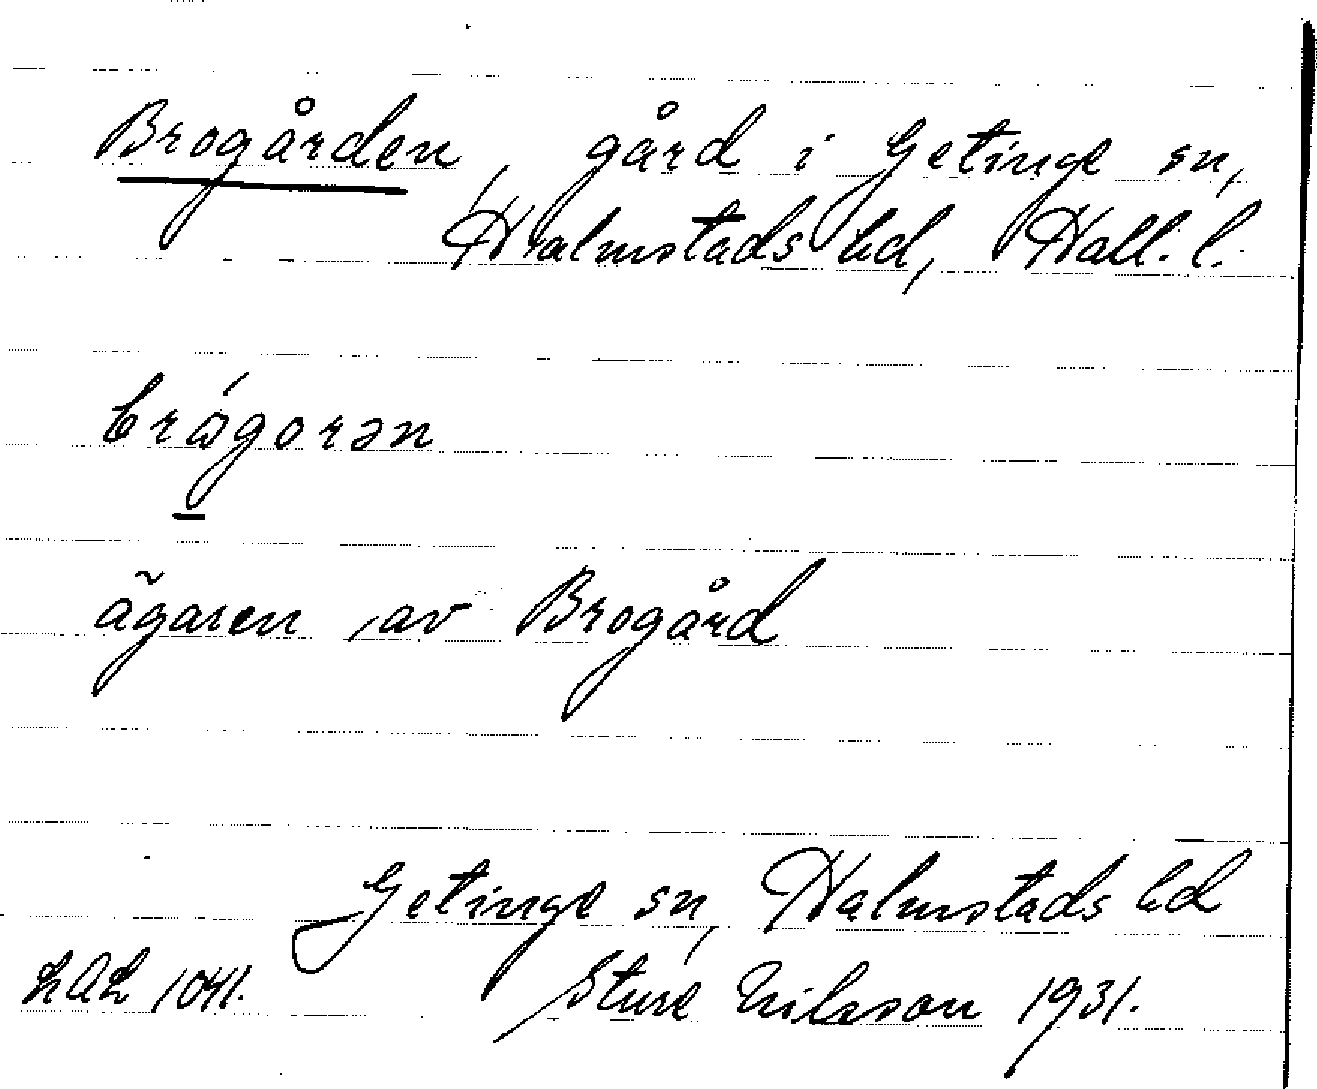 Brogården, gård i Getinge sn,
Halmstads hd, Hall. l.
brǿgorən
ägaren av Brogård
Getinge sn, Halmstads hd
Sture Nilsson 1931.